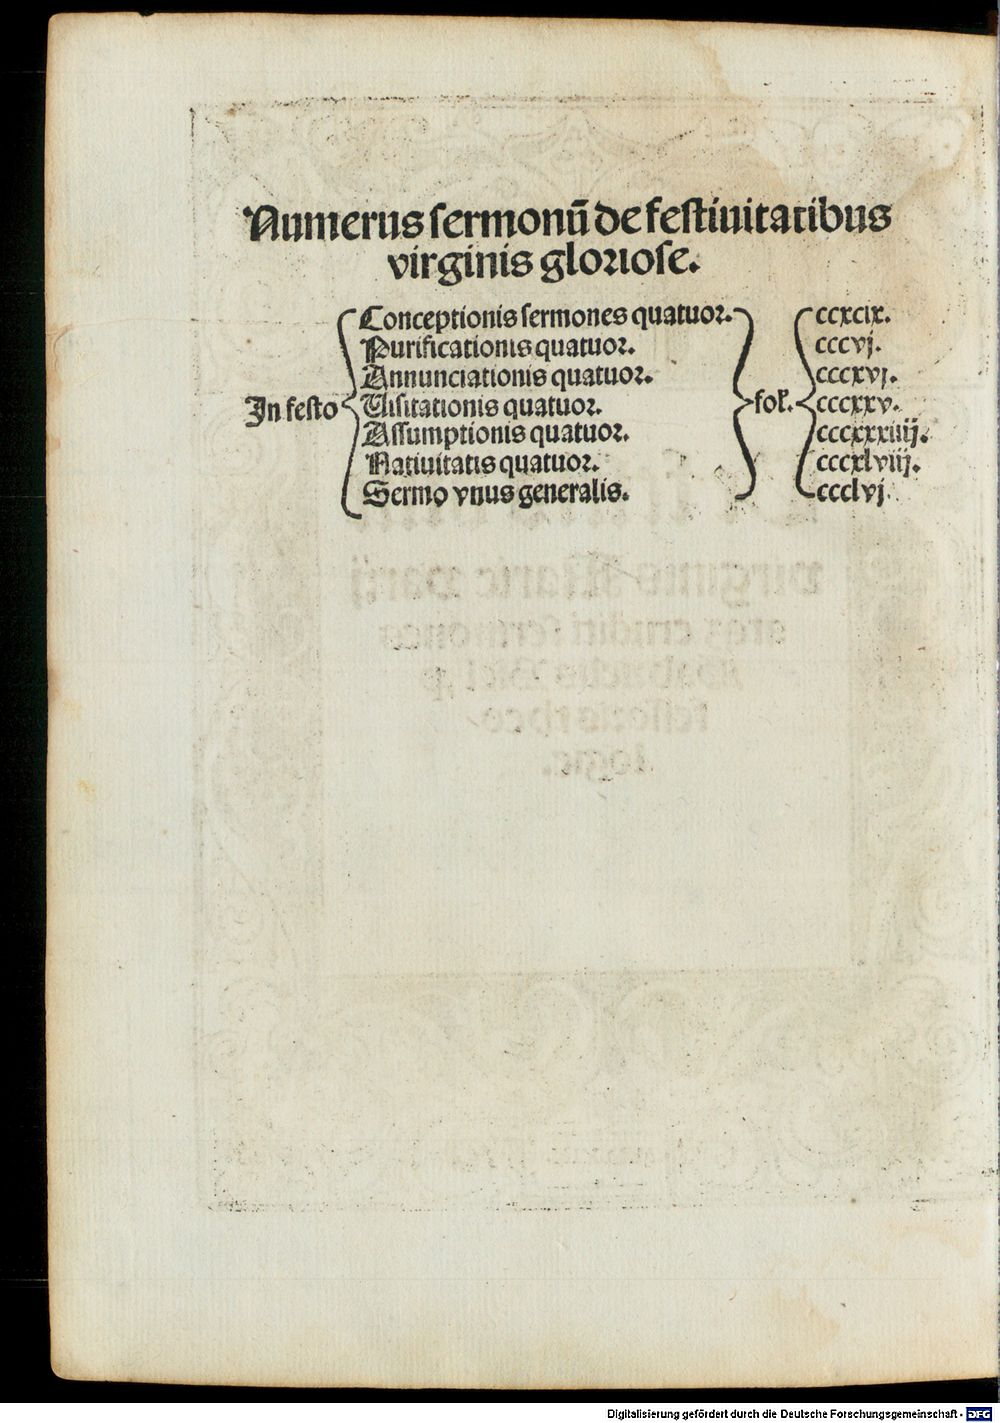 Numerus sermonū de festiuitatibus
virginis gloriose.
In festo
Conceptionis sermones quatuor.
Purificationis quatuor.
Annunciationis quatuor.
Uisitationis quatuor.
Assumptionis quatuor.
Natiuitatis quatuor.
Sermo vnus generalis.
fol.
ccxcix.
cccvj.
cccxvj.
cccxxv.
cccxxxiiij.
cccxlviij.
ccclvj.
Digitalisierung gefördert durch die Deutsche Forschungsgemeinschaft - DFG